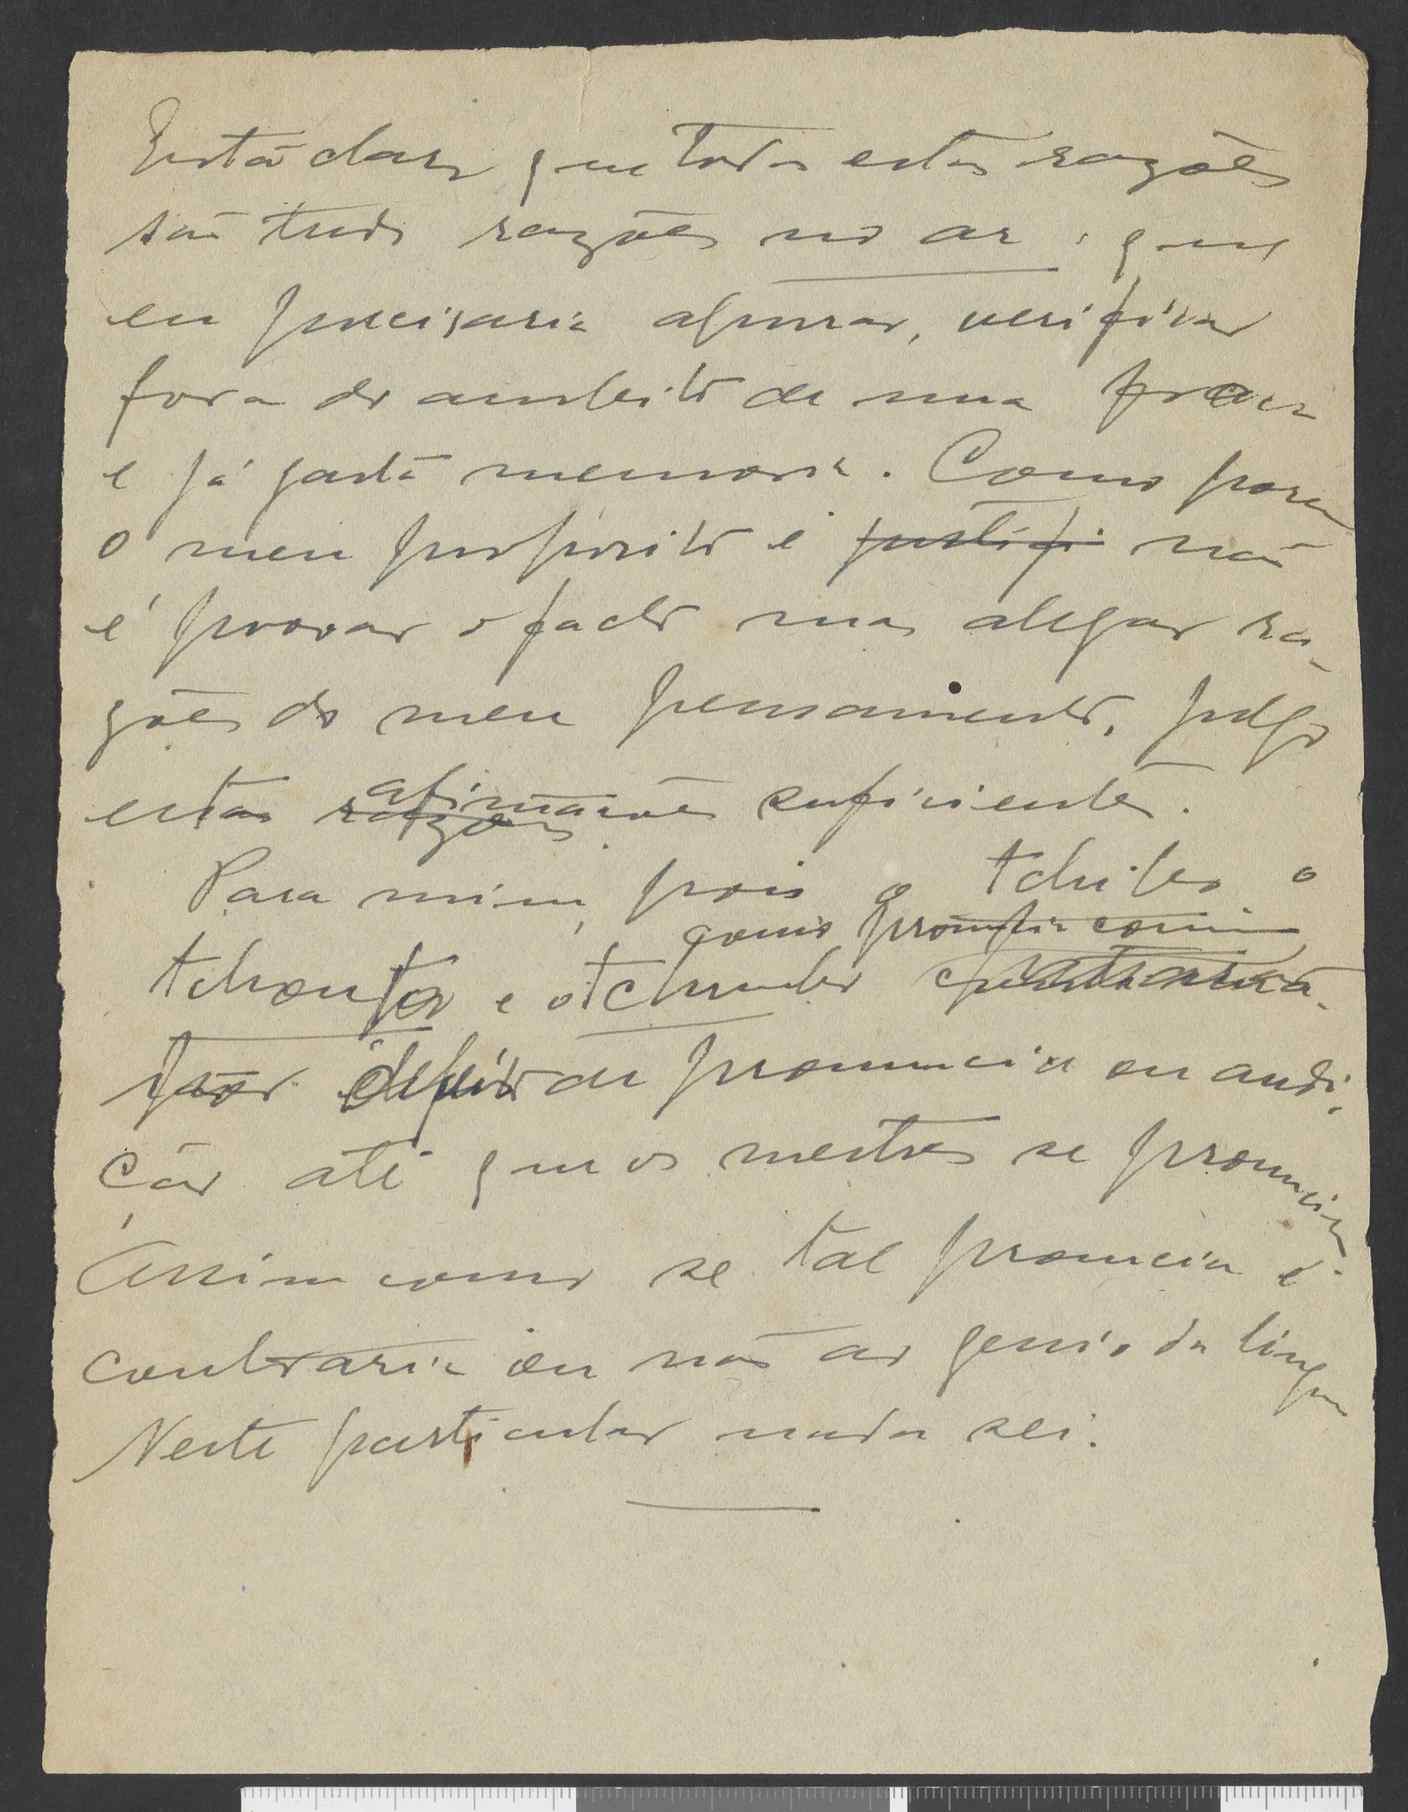 Está claro que todas estas razões
são tudo razões no ar: que
eu precisaria apurar, verificar
fora do ambito de uma fraca
e já gasta memoria. Como porem
o meu proposito é justifi não
é provar o facto mas alegar ra-
zões do meu pensamento, julgo
estas razões afirmações suficientes.
Para mim, pois o tchibo o
como pronuncia comum
e o
é defeito de pronuncia ou audi-
ção até que os mestres se pronunciem
Assim como se tal pronuncia é
contraria ou não ao genio da lingua
Neste particular nada sei.